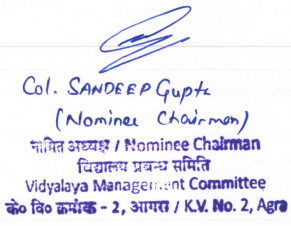 Col. SANDEEP Gupta
(Nominee Chairman)
नामित अध्यक्ष / Nominee Chairman
विद्यालय प्रबन्ध समिति
Vidyalaya Management Committee
के० वि० क्रमांक - 2, आगरा / K.V. No. 2, Agra